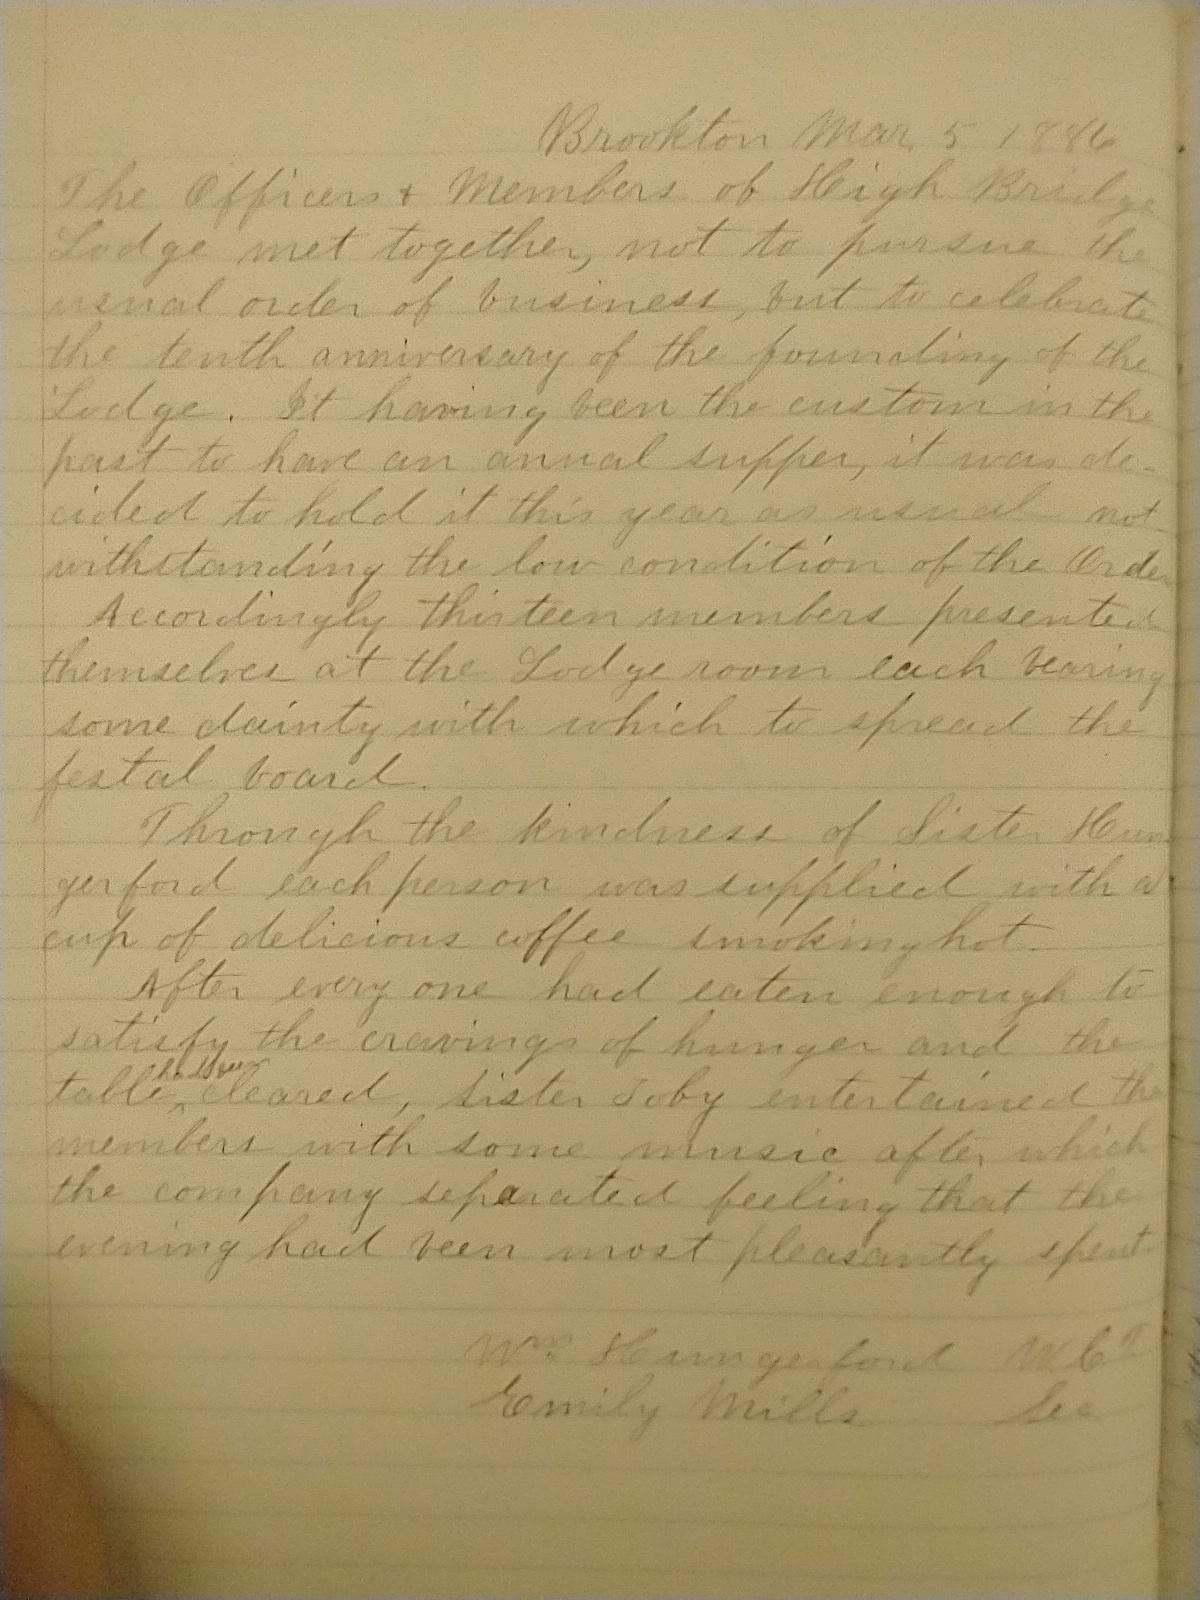 Brookton Mar. 5 1886
The Officers & Members of High Bridge
Lodge met together, not to pursue the
usual order of business, but to celebrate
the tenth anniversary of the founding of the
Lodge. It having been the custom in the
past to have an anual supper, it was de-
cided to hold it this year as usual not-
withstanding the low condition of the Order
Accordingly thirteen members presented
themselves at the Lodge room each bearing
some dainty with which to spread the
festal board.
Through the kindness of Sister Hun-
gerford each person was supplied with a
cup of delicious coffee smoking hot.
After every one had eaten enough to
satisfy the cravings of hunger and the
had been
table cleared, Sister Toby entertained the
members with some music after which
the company separated feeling that the
evening had been most pleasantly spent.
Wm Hungerford W C T
Emily Mills Sec